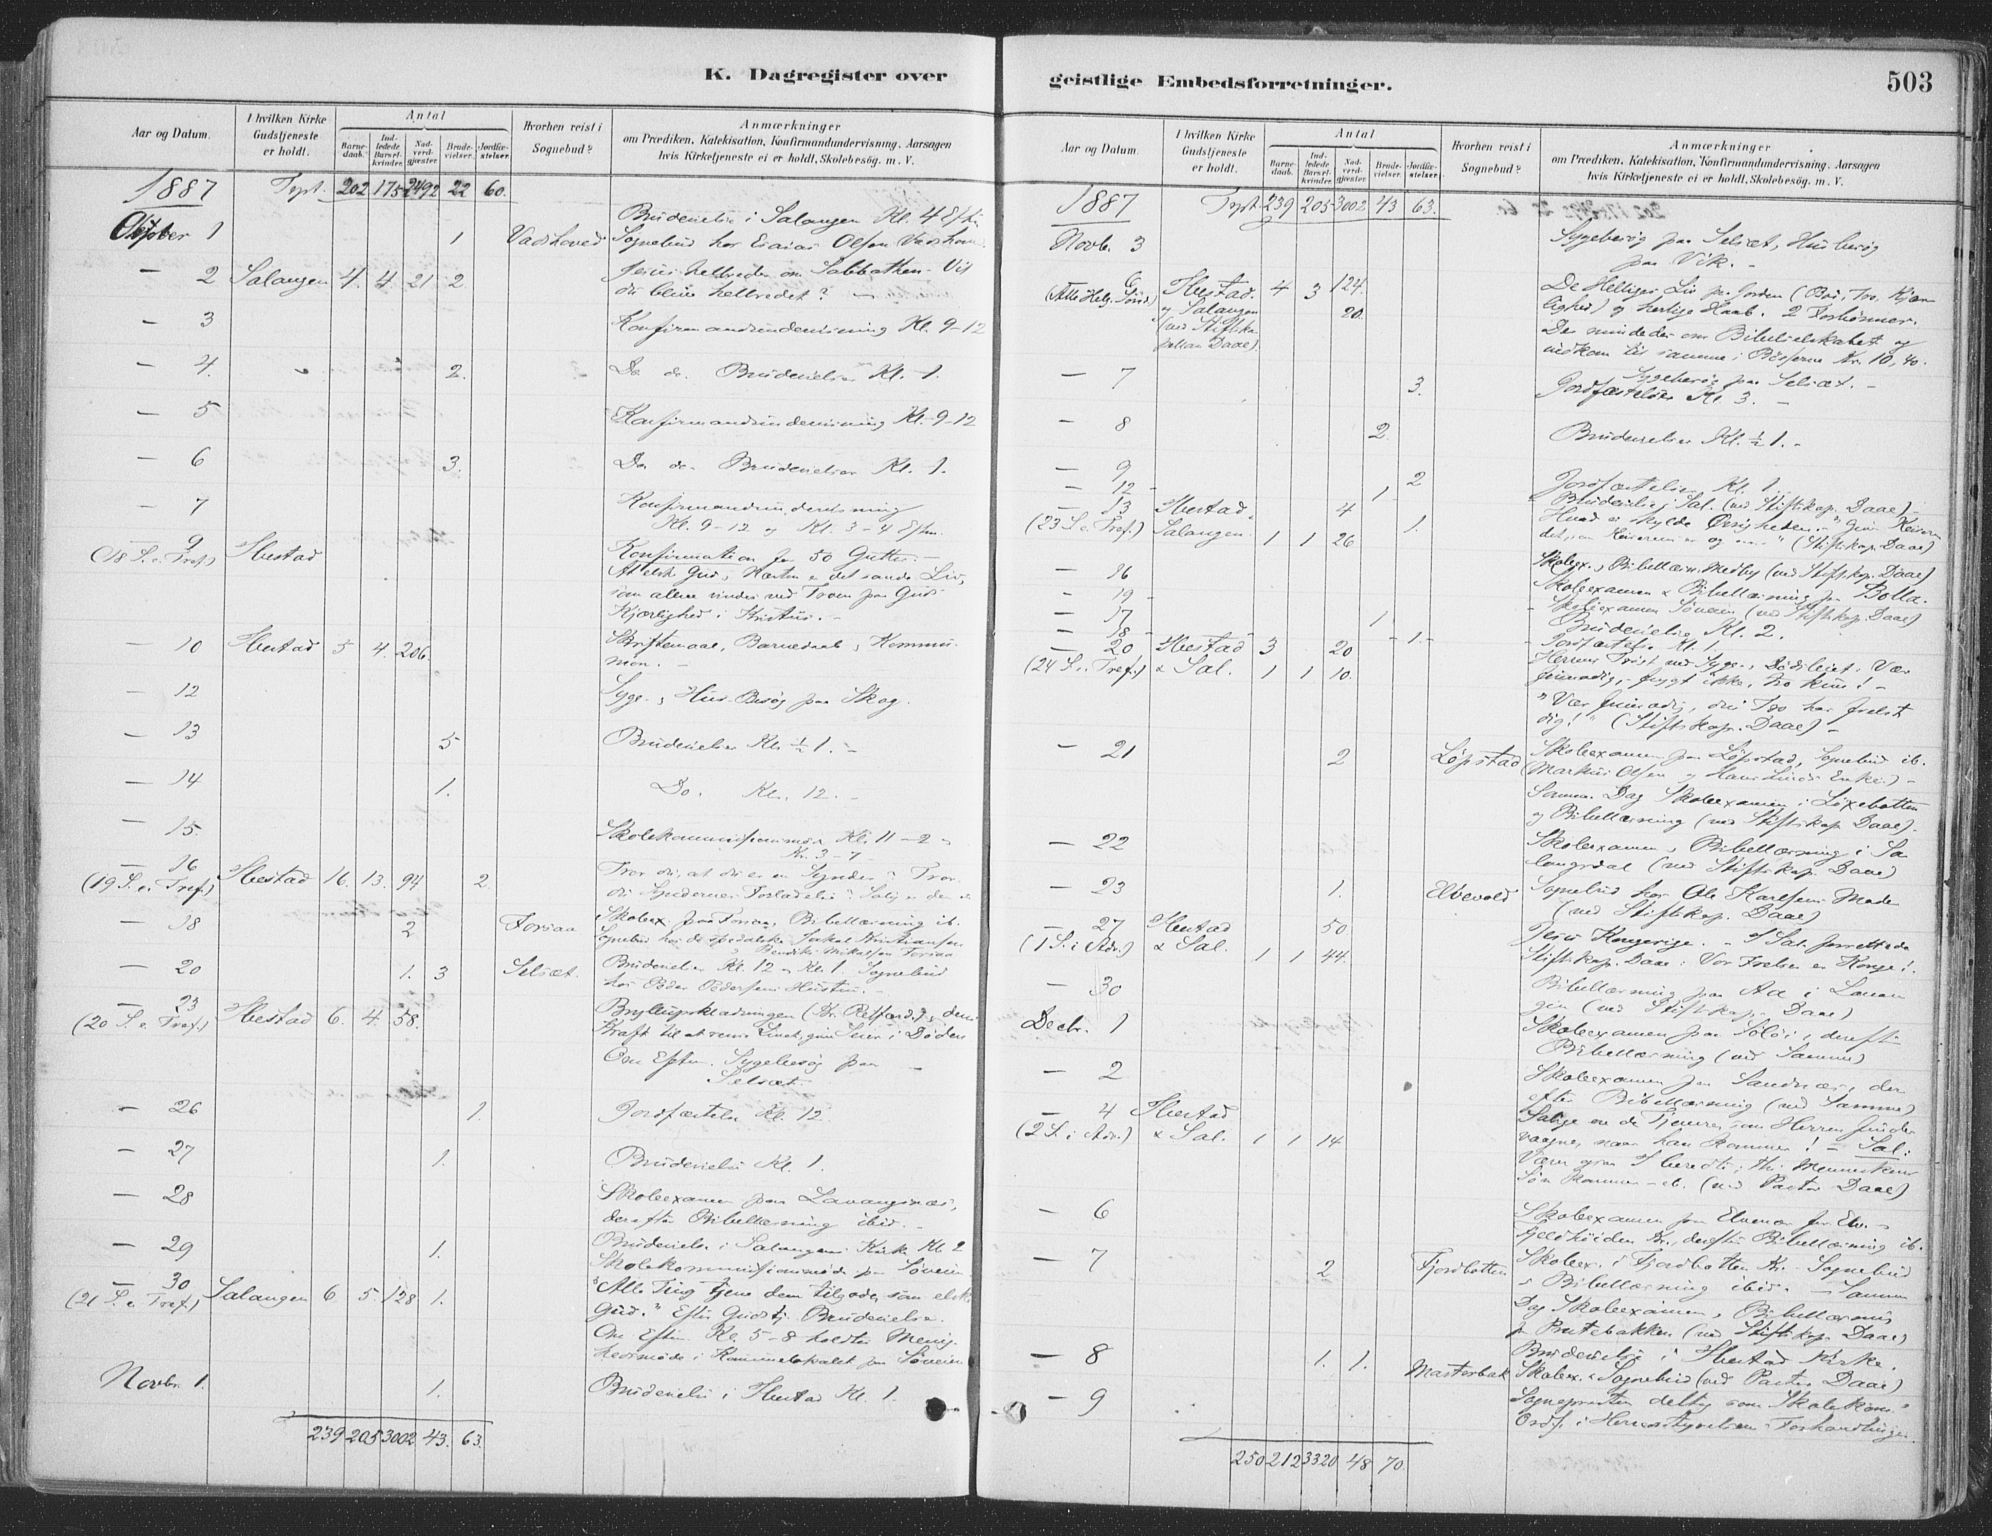 K. Dagregister over
Aar og Datum.
I hvilken Kirke Gudstjeneste er holdt.
Antal
Barne-daab.
Ind-ledede Barsel-kvinder.
Nad-verd-gjester.
Brude-vielser.
Jordfæ-stelser.
Hvorhen reist i Sognebud?
Anmærkninger
om Prædiken, Katekisation, Konfirmandundervisning, Aarsagen
hvis Kirketjeneste ei er holdt, Skolebesøg. m. V.
1887 Tspt. 202 175 2492 22 60.
Brudevielse i Salangen Kl. 4 Eftm.
Oktober 1 1 Sognebud hos Esaias Olsen
— 2 Salangen 4. 4 21 2. Jesus helbreder om Sabbathen - Vil
du blive helbredet?
— 3 Konfirmandundervisning Kl. 9-12
— 4. 2. Do do. Brudevielser Kl. 1.
— 5 Konfirmandundervisning Kl. 9-12
— 6 3. Do do. Brudevielser Kl. 1.
— 7 Konfirmandundervisning
Kl. 9-12 og Kl. 3-4 Eftm.
— 9 (18 S. e. Tref.) Ibestad Konfirmation for 50 Gutter.
At elske Gud, Næsten er det sande Liv,
som alene vindes ved Troen paa Guds
Kjærlighed i Kristus.
— 10 Ibestad 5 4. 206. Skriftemaal, Barnedaab, Kommu-
nion.
— 12 Syge- & Hus-Besøg paa Skog.
— 13 5 Brudevielser Kl. ½ 1.
— 14 1. Do. Kl. 12.
— 15. Skolekommissionsmøde Kl. 11-2
3-7
— 16 (19 S. e. Tref.) Ibestad 16. 13. 94 2. Tror du, at du er en Synder? Tror
du Syndernes Forladelse? Salig er den
— 18 2 Forsaa Skoleex. paa Forsaa, Bibellæsning ib.
Sognebud hos de spedalske
— 20 1. 3 Selsæt. Brudevielser Kl. 12 & Kl. 1. Sognebud
hos Peder Pedersens Hustru.
— 23 (20 S. e. Tref.) Ibestad 6. 4. 58. Bryllupsklædningen
Kraft til at
Om Eftm. Sygebesøg paa
Selsæt.
— 26 1. Jordfæstelse Kl. 12
— 27 1. Brudevielse Kl. 1.
— 28 Skoleexamen paa Lavangsnæs,
derefter Bibellæsning ibid.
— 29 1. Brudevielse i Salangens Kirke Kl. 2
Skolekommissionsmøde paa Søveien
— 30 (21 S. e. Tref.) Salangen 6 5. 128. 1. "Alle Ting tjene dem tilgode, som elske
Gud." Efter Gudstj. Brudevielse.
Om Eftm. Kl. 5-8 holdtes Menig-
hedsmøde i Kommunelokalet paa Søveien
Novbr. 1. 1. Brudevielse i Ibestad Kl. 1.
239 205 3002 43. 63.
geistlige Embedsforretninger. 503
Aar og Datum.
I hvilken Kirke Gudstjeneste er holdt.
Antal
Barne-daab.
Ind-ledede Barsel-kvinder.
Nad-verd-gjester.
Brude-vielser.
Jordfæ-stelser.
Hvorhen reist i Sognebud?
Anmærkninger
om Prædiken, Katekisation, Konfirmandundervisning, Aarsagen
hvis Kirketjeneste ei er holdt, Skolebesøg. m. V.
1887 Tspt. 239 205 3002 43 63.
Novb. 3 Sygebesøg paa Selsæt, Husbesøg
paa Vik.
6 (Alle Helg. Sønd.) Ibestad. 4 3 124. De Helliges Liv paa Jorden
& Salangen 20. og herlige Haab.
(ved Stiftska- De mindedes om Bibelselskabet og
pellan Daae) indkom til samme i Bøsserne Kr. 10,40.
— 7 3. Sygebesøg paa Selsæt.
Jordfæstelser Kl. 3.
— 8 2. Brudevielser Kl. ½ 1.
— 9 2 Jordfæstelser Kl. 1.
— 12 1 Brudevielse i Sal. (ved Stiftskap. Daae)
— 13 Ibestad, 4 1. Hvad vi skylde Øvrigheden. "Giv Keiseren
(23 S. e. Tref.) Salangen. 1 1 26 det, som Keiserens er og (Stiftskap. Daae)
— 16 Skoleex. & Bibellæsn. Medby (ved Stiftskap. Daae)
— 19 Skoleexamen & Bibellæsning paa Bolla.
— 17 1 Skoleexamen Søveien (ved Stiftskap. Daae)
Brudevielse Kl. 2.
— 18 1. Jordfæstelse Kl. 1.
— 20 Ibestad 3 20 Herrens Trøst ved Syge- & Dødsleiet: Vær
(24 S. e. Tref.) & Sal. 1 1 10. frimodig, frygt ikke, tro kun!
"Vær frimodig, din Tro har frelst
dig!" (Stiftskap. Daae)
— 21 2 Løpstad Skoleexamen paa Løpstad, Sognebud ib.
(Markus Olsen og Enke)
Samme Dag Skoleexamen i Løxebotten
og Bibellæsning (ved Stiftskap. Daae).
— 22 Skoleexamen & Bibellæsning i Sa-
langsdal (ved Stiftskap. Daae)
— 23 1. Elvevold Sognebud hos Ole Karlsen Moden
(ved Stiftskap. Daae)
— 27 Ibestad 50 Jesu Kongerige. I Sal. forrettede
(1 S. i Adv.) & Sal. 1 1 44. Stiftskap. Daae: Vor Frelser en Konge!
— 30 Bibellæsning paa Aa i Lavan-
gen (ved Stiftskap. Daae)
Decbr. 1 Skoleexamen paa derefter
Bibellæsning (ved Samme)
— 2 Skoleexamen paa Sandnæs, der-
efter Bibellæsning (ved Samme)
— 4 Ibestad Salige ere de Tjenere, som Herren finder
(2 S. i Adv.) & Sal. 1 1 14 vaagne, naar han kommer! — Sal:
Værer og I beredte; thi Menneskens
Søn kommer (ved Pastor Daae)
— 6 Skoleexamen paa Elvenæs for Elve-
derefter Bibellæsning ib.
— 7 2 Fjordbotten Skoleex. i Fjordbotten Kr. Sognebud
& Bibellæsning ibid. — Samme
Dag Skoleexamen & Bibellæsning
paa Bratebakken (ved Stiftskap. Daae)
— 8 1. 1. Brudevielse i Ibestad Kirke.
Masterbak Skoleex. & Sognebud (ved Pastor Daae)
— 9 Sognepræsten deltog som Skolekom.
Ordf. i Herredsstyrelsens Forhandlinger.
250 212 3320 48 70.